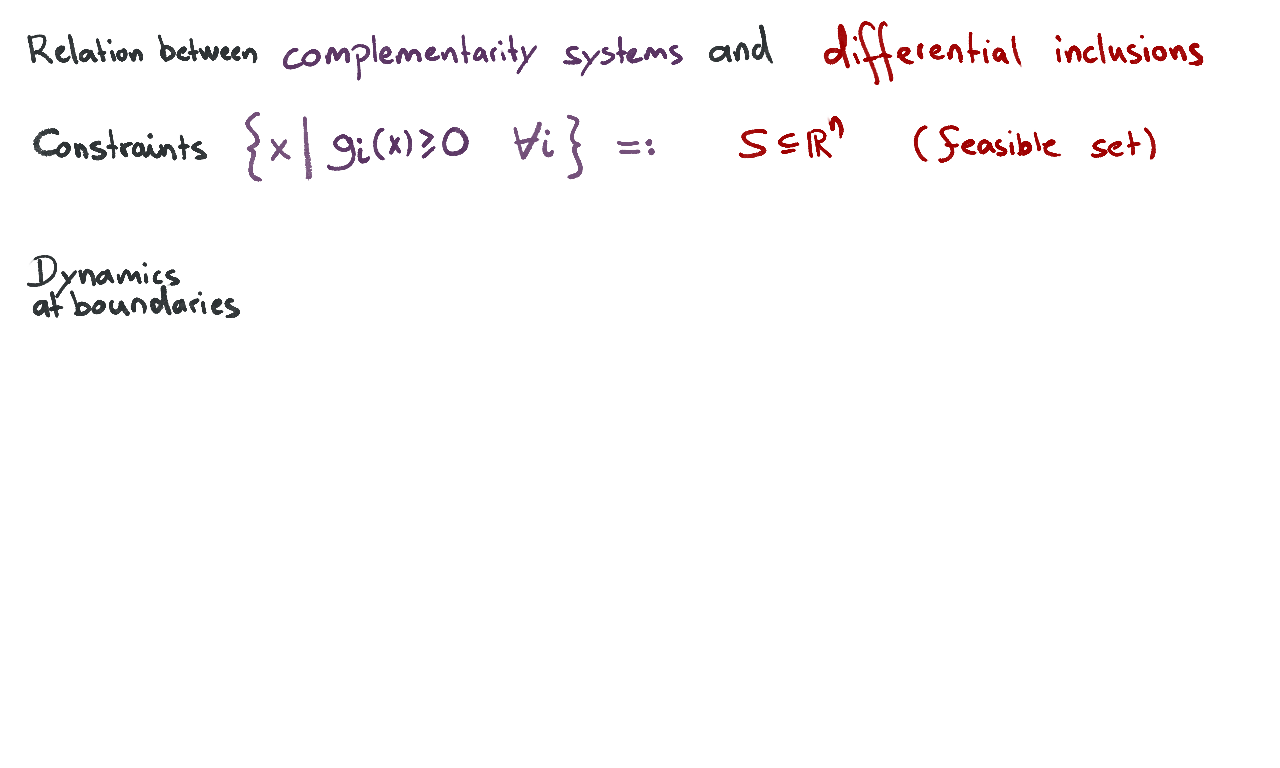 Relation between complementarity systems and differential inclusions
Constraints {x | gi(x) ≥ 0 ∀i} =: S ⊆ ℝⁿ (feasible set)
Dynamics
at boundaries